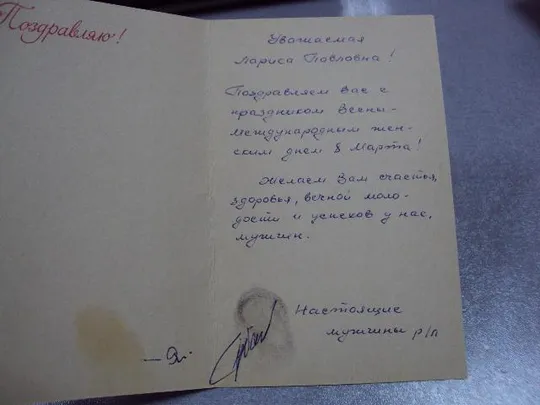 Поздравляю!
Уважаемая
Лариса Павловна!
Поздравляем вас с
праздником весны-
международным жен-
ским днем 8 Марта!
Желаем Вам счастья,
здоровья, вечной моло-
дости и успехов у нас,
мужчин.
Настоящие
мужчины р/п